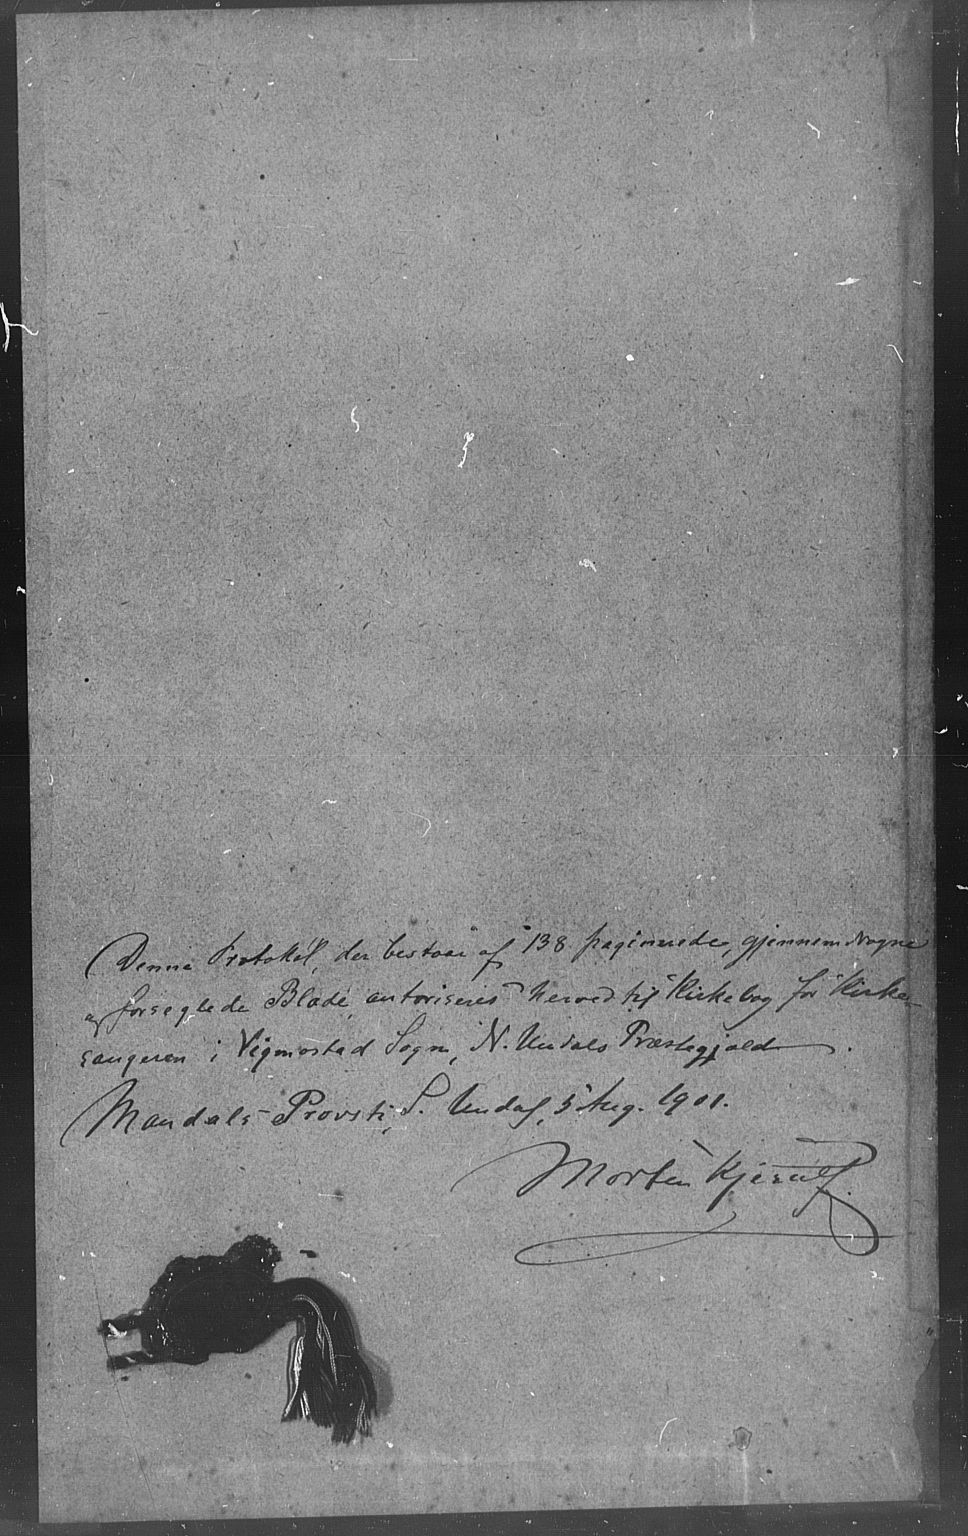 Denne Protokol, der bestaar af 138 paginerede, gjennemdragne
og forseglede Blade, autoriseres herved til Kirkebog for Kirke-
sangeren i Vigmostad Sogn, N. Undals Præstegjæld.
Mandals Provsti, S. Undal, 5 Aug. 1901.
Morten Kjerulf.